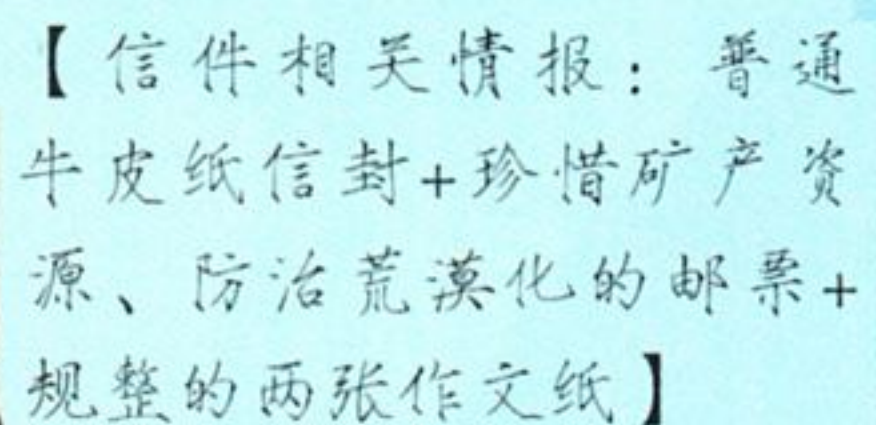 【信件相关情报：普通
牛皮纸信封+珍惜矿产资
源、防治荒漠化的邮票+
规整的两张作文纸】